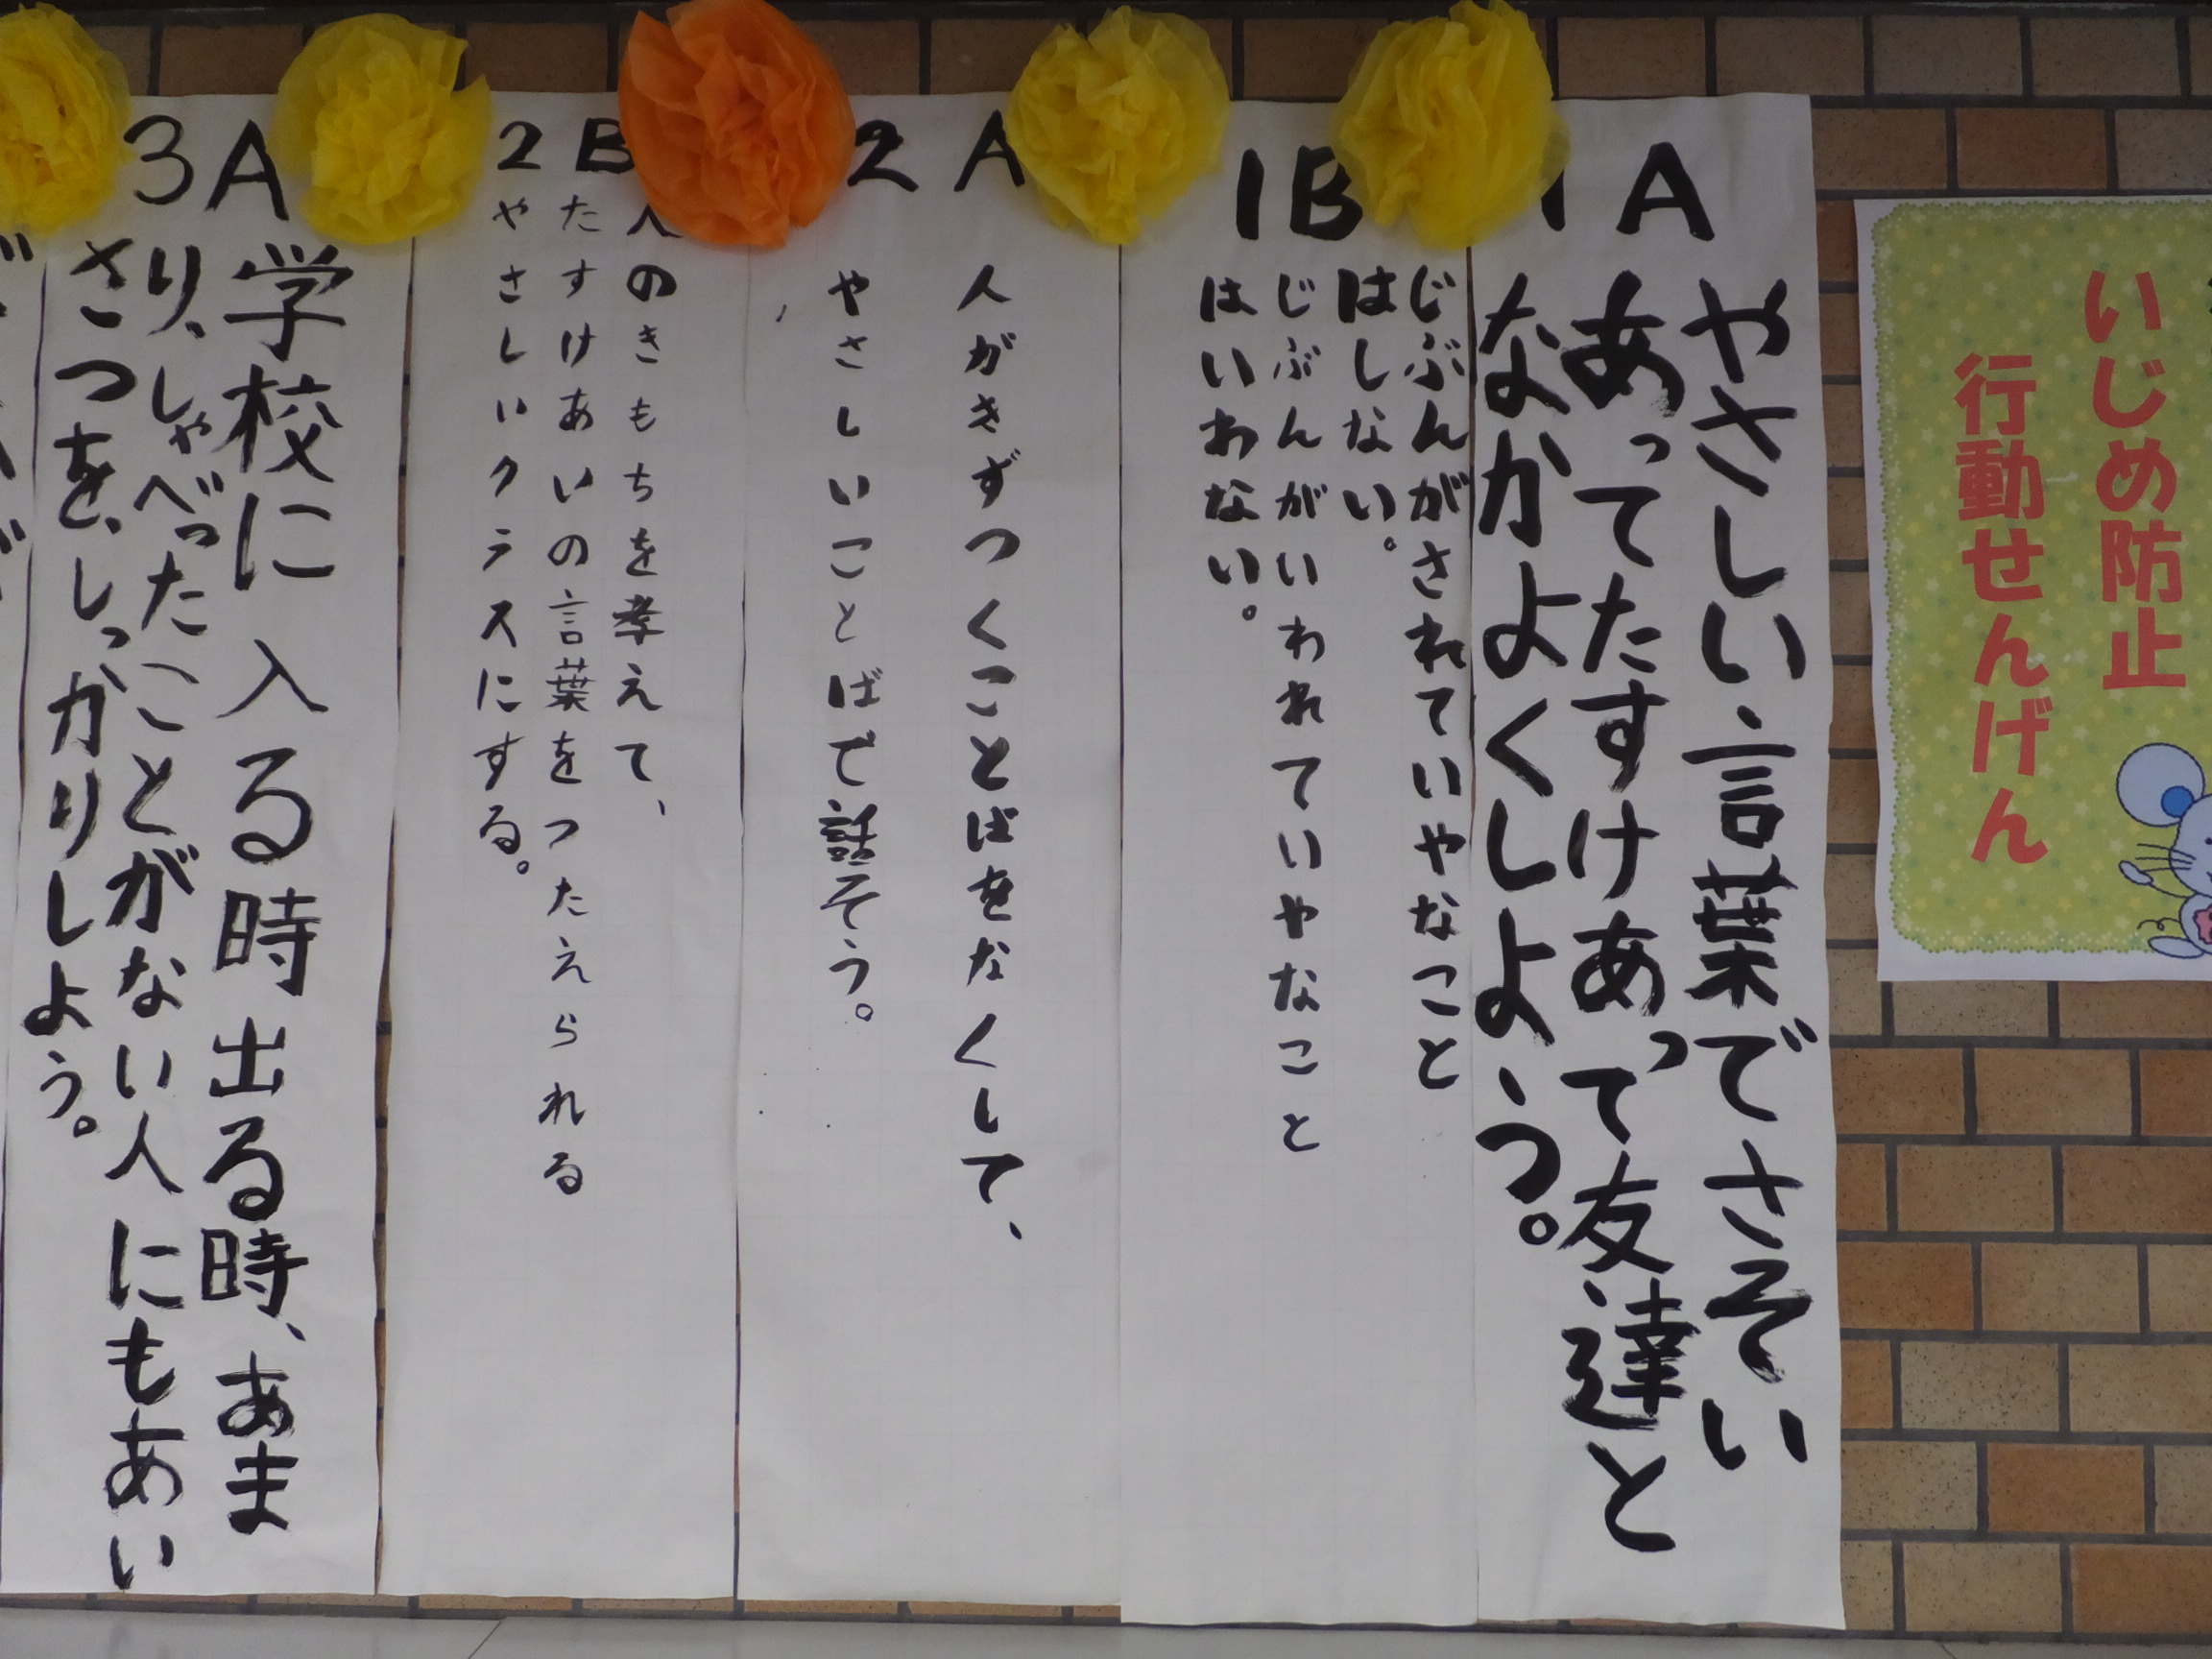 いじめ防止
行動せんげん
1A
やさしい言葉でさそい
あってたすけあって友達と
なかよくしよう。
1B
じぶんがされていやなこと
はしない。
じぶんがいわれていやなこと
はいわない。
2A
人がきずつくことばをなくして、
やさしいことばで話そう。
2B
人のきもちを考えて、
たすけあいの言葉をつたえられる
やさしいクラスにする。
3A
学校に入る時出る時、あま
り、しゃべったことがない人にもあい
さつを、しっかりしよう。